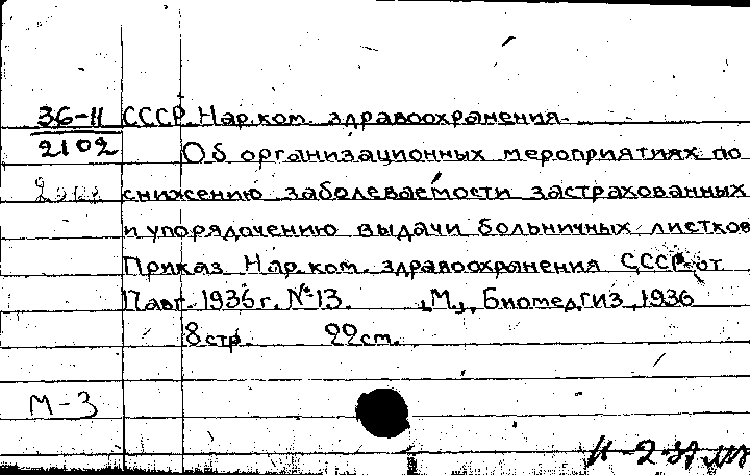 36-11 СССР. Нар.ком. здравоохранения.
2102
Об организационных мероприятиях по
снижению заболеваемости застрахованных
и упорядочению выдачи больничных листков
Приказ Нар.ком. здравоохранения СССР от
17 авг. 1936 г. № 13. [М], Биомедгиз, 1936
8 стр. 22 см.
М-3